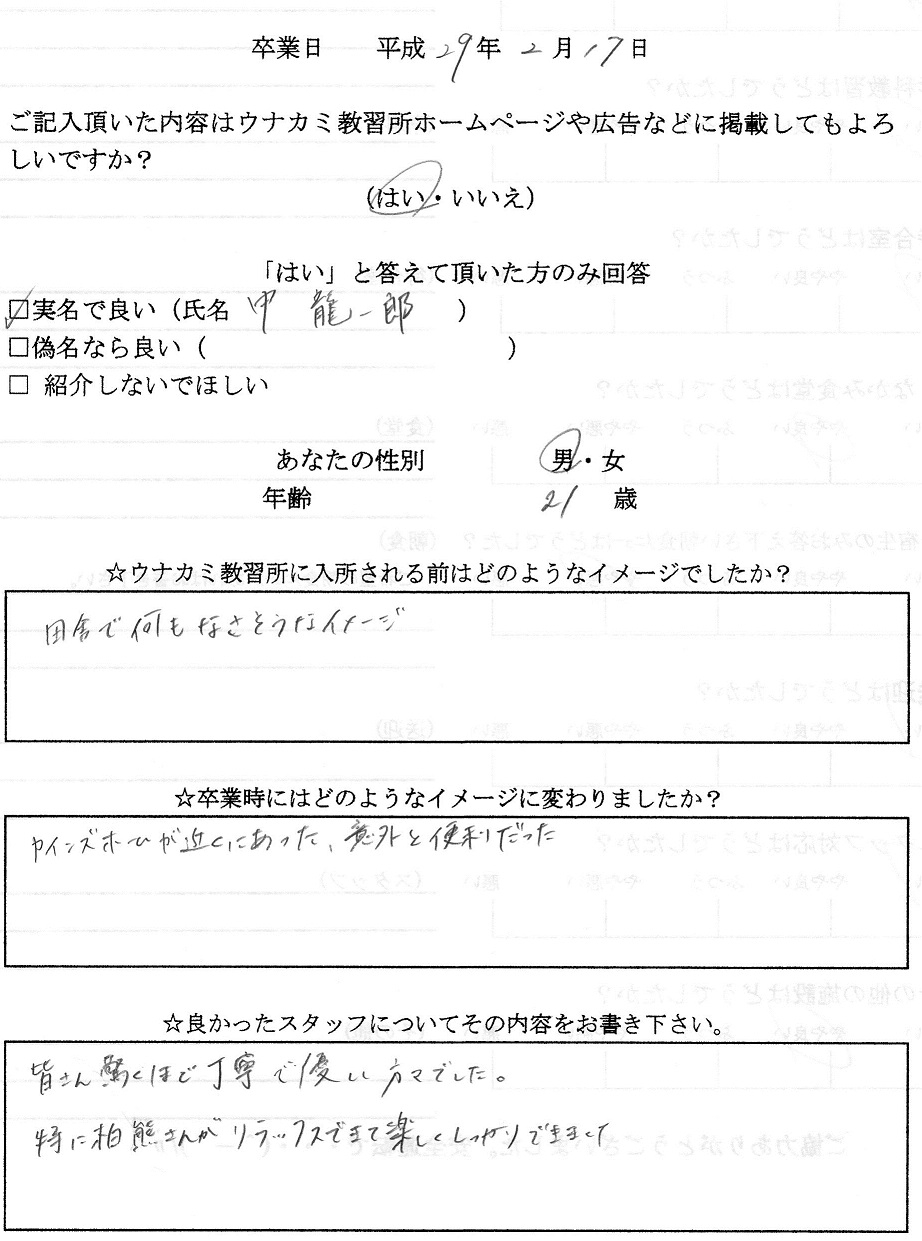 卒業日 平成29年2月17日
ご記入頂いた内容はウナカミ教習所ホームページや広告などに掲載してもよろ
しいですか？
(はい・いいえ)
「はい」と答えて頂いた方のみ回答
☑実名で良い（氏名 中 龍一郎 ）
□偽名なら良い（ ）
□ 紹介しないでほしい
あなたの性別 男・女
年齢 21 歳
☆ウナカミ教習所に入所される前はどのようなイメージでしたか？
田舎で何もなさそうなイメージ
☆卒業時にはどのようなイメージに変わりましたか？
カインズホームが近くにあった、意外と便利だった
☆良かったスタッフについてその内容をお書き下さい。
皆さん驚くほど丁寧で優しい方々でした。
特に柏熊さんがリラックスできて楽しくしっかりできました